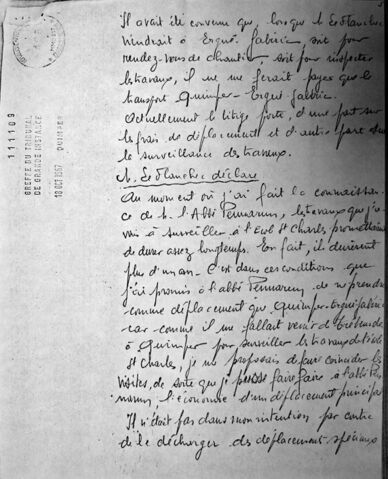 Il avait été convenu que, lorsque M. Le Blanchec
viendrait à Ergué Gabéric, soit pour
rendez-vous de chantier, soit pour inspecter
les travaux, il ne me ferait payer que le
transport Quimper-Ergué Gabéric.
Actuellement le litige porte, d'une part sur
les frais de déplacement et d'autre part sur
la surveillance des travaux.
M. Le Blanchec déclare
Au moment où j'ai fait la connaissan-
ce de M. l'Abbé Pennarun, les travaux que j'a-
vais à surveiller à l'école St Charles promettaient
de durer assez longtemps. En fait, ils durèrent
plus d'un an. C'est dans ces conditions que
j'ai promis à l'abbé Pennarun de ne prendre
comme déplacement que Quimper-Ergué Gabéric
car comme il me fallait venir de
à Quimper pour surveiller les travaux de l'école
St Charles, je me proposais de faire coïncider les
visites, de sorte que je faire à l'abbé Pen-
narun, l'économie d'un déplacement principal
Il n'était pas dans mon intention par contre
de le décharger des déplacements spéciaux
111109
GREFFE DU TRIBUNAL
DE GRANDE INSTANCE
QUIMPER